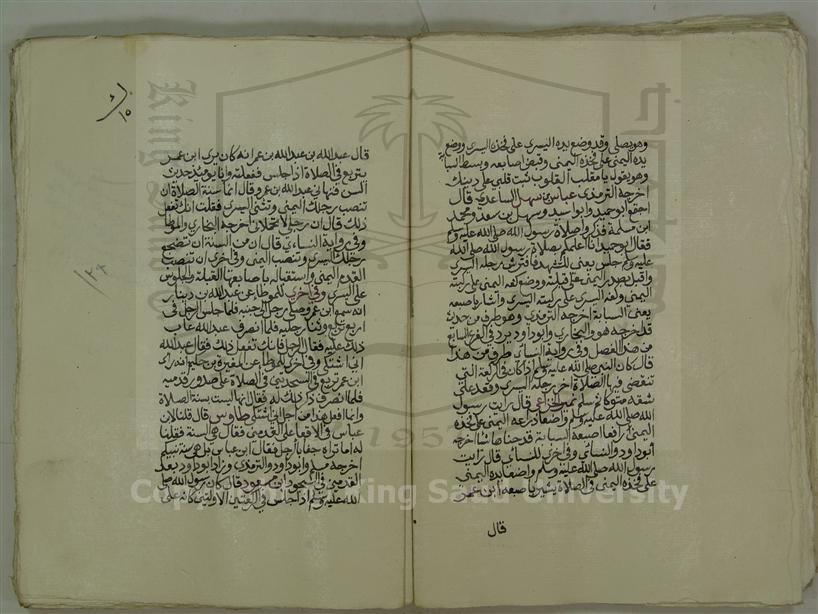 وهو يصلي وقد وضع يده اليسرى على فخذه اليسرى ووضع
يده اليمنى على فخذه اليمنى وقبض اصابعه وبسط السبابة
وهو يقول يا مقلب القلوب ثبت قلبي على دينك
اخرجه الترمذي عباس بن سهل الساعدي قال
اجتمع ابو حميد وابو اسيد وسهل بن سعد ومحمد
ابن مسلمة فذكروا صلاة رسول الله صلى الله عليه وسلم
فقال ابو حميد انا اعلمكم بصلاة رسول الله صلى الله
عليه وسلم جلس يعني للتشهد فافترش رجله اليسرى
واقبل بصدر اليمنى على قبلته ووضع كفه اليمنى على ركبته
اليمنى وكفه اليسرى على ركبته اليسرى واشار باصبعه
يعني السبابة اخرجه الترمذي وهو طرف من حديث
قد اخرجه هو والبخاري وابو داود ويرد في الفرع السابع
من هذا الفصل وفي رواية النسائي طرف من هذا
قال كان النبي صلى الله عليه وسلم اذا كان في الركعة التي
تنقضي فيها الصلاة اخر رجله اليسرى وقعد على
شقه متوركا ثم سلم نمير الخزاعي قال رايت رسول
الله صلى الله عليه وسلم واضعا ذراعه اليمنى على فخذه
اليمنى رافعا اصبعه السبابة قد حناها شيئا اخرجه
ابو داود والنسائي وفي اخرى للنسائي قال رايت
رسول الله صلى الله عليه وسلم واضعا يده اليمنى
على فخذه اليمنى في الصلاة يشير باصبعه ابن عمر
قال
قال عبد الله بن عبد الله بن عمر انه كان يرى ابن عمر
يتربع في الصلاة اذا جلس ففعلته وانا يومئذ حديث
السن فنهاني عبد الله بن عمر وقال انما سنة الصلاة ان
تنصب رجلك اليمنى وتثني اليسرى فقلت انك تفعل
ذلك قال ان رجلي لا تحملاني اخرجه البخاري والموطا
وفي رواية النسائي قال ان من السنة ان تضجع
رجلك اليسرى وتنصب اليمنى وفي اخرى ان تنصب
القدم اليمنى واستقباله باصابعها القبلة والجلوس
على اليسرى وفي اخرى للموطا عن عبد الله بن دينار
انه سمع ابن عمر وصلى رجل الى جنبه فلما جلس الرجل في
اربع تربع وثنى رجليه فلما انصرف عبد الله عاب
ذلك عليه فقال الرجل فانك تفعل ذلك فقال عبد الله
اني اشتكي وفي اخرى للموطا عن المغيرة بن حكيم انه راى
ابن عمر تربع في السجدتين في الصلاة على صدور قدميه
فلما انصرف ذكر ذلك له فقال انها ليست سنة الصلاة
وانما افعل هذا من اجل اني اشتكي طاوس قال قلنا لابن
عباس في الاقعا على القدمين فقال هي السنة فقلنا
له انا لنراه جفا بالرجل فقال ابن عباس بل هي سنة نبيكم
اخرجه مسلم وابو داود والترمذي وزاد ابو داود بعد
القدمين في السجود ابن مسعود قال كان رسول الله صلى
الله عليه وسلم اذا جلس في الركعتين الاوليين كانه على
١٥
Copyright © King Saud University
1957